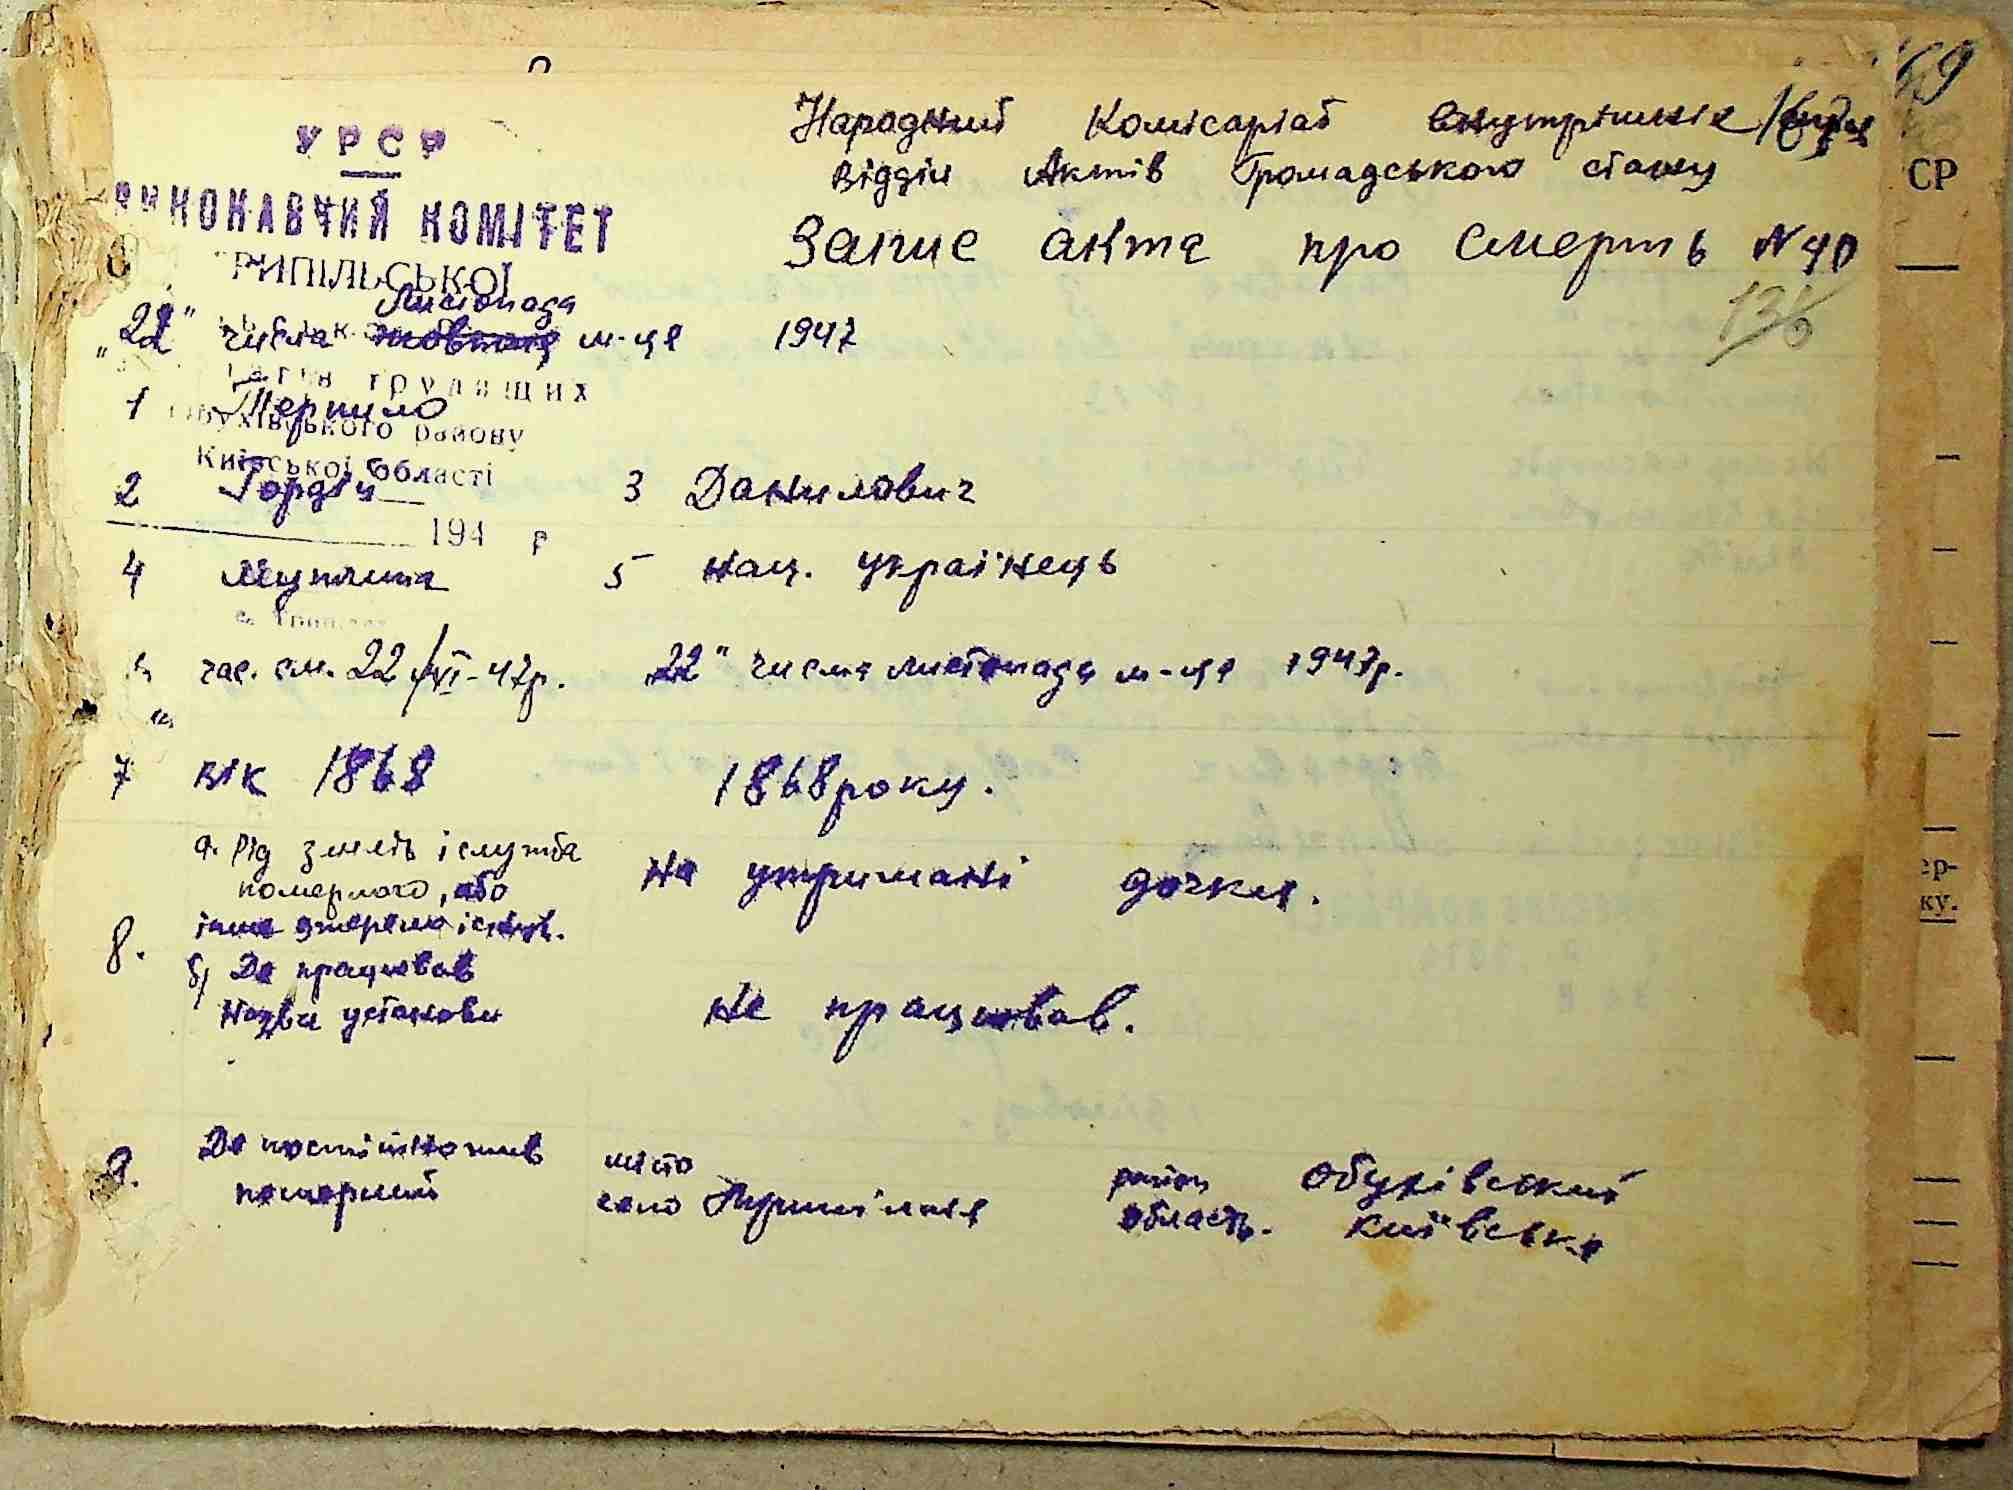 69
Народний Комісаріат внутрішніх
Відділ Актів Громадського стану
Запис акта про смерть N 40
136
УРСР
ВИКОНАВЧИЙ КОМІТЕТ
ТРИПІЛЬСЬКОЇ
Листопада
"22" числа жовтня м-ця 1947
трудящих
1 Терпило
Обухівського району
Київської області
2 Гордій 3 Данилович
194 р
4 Мущина 5 нац. українець
час. см. 22/XI-47р. 22" числа листопада м-ця 1947р.
7 вік 1868 1868 року.
а. Рід занять і служба
померлого, або На утримані дочки.
8. інше джерело існув.
б) Де працював
Назва установи Не працював.
9. Де постійно жив місто район Обухівський
померший село Трипілля область. Київська
СР
ер-
ку.